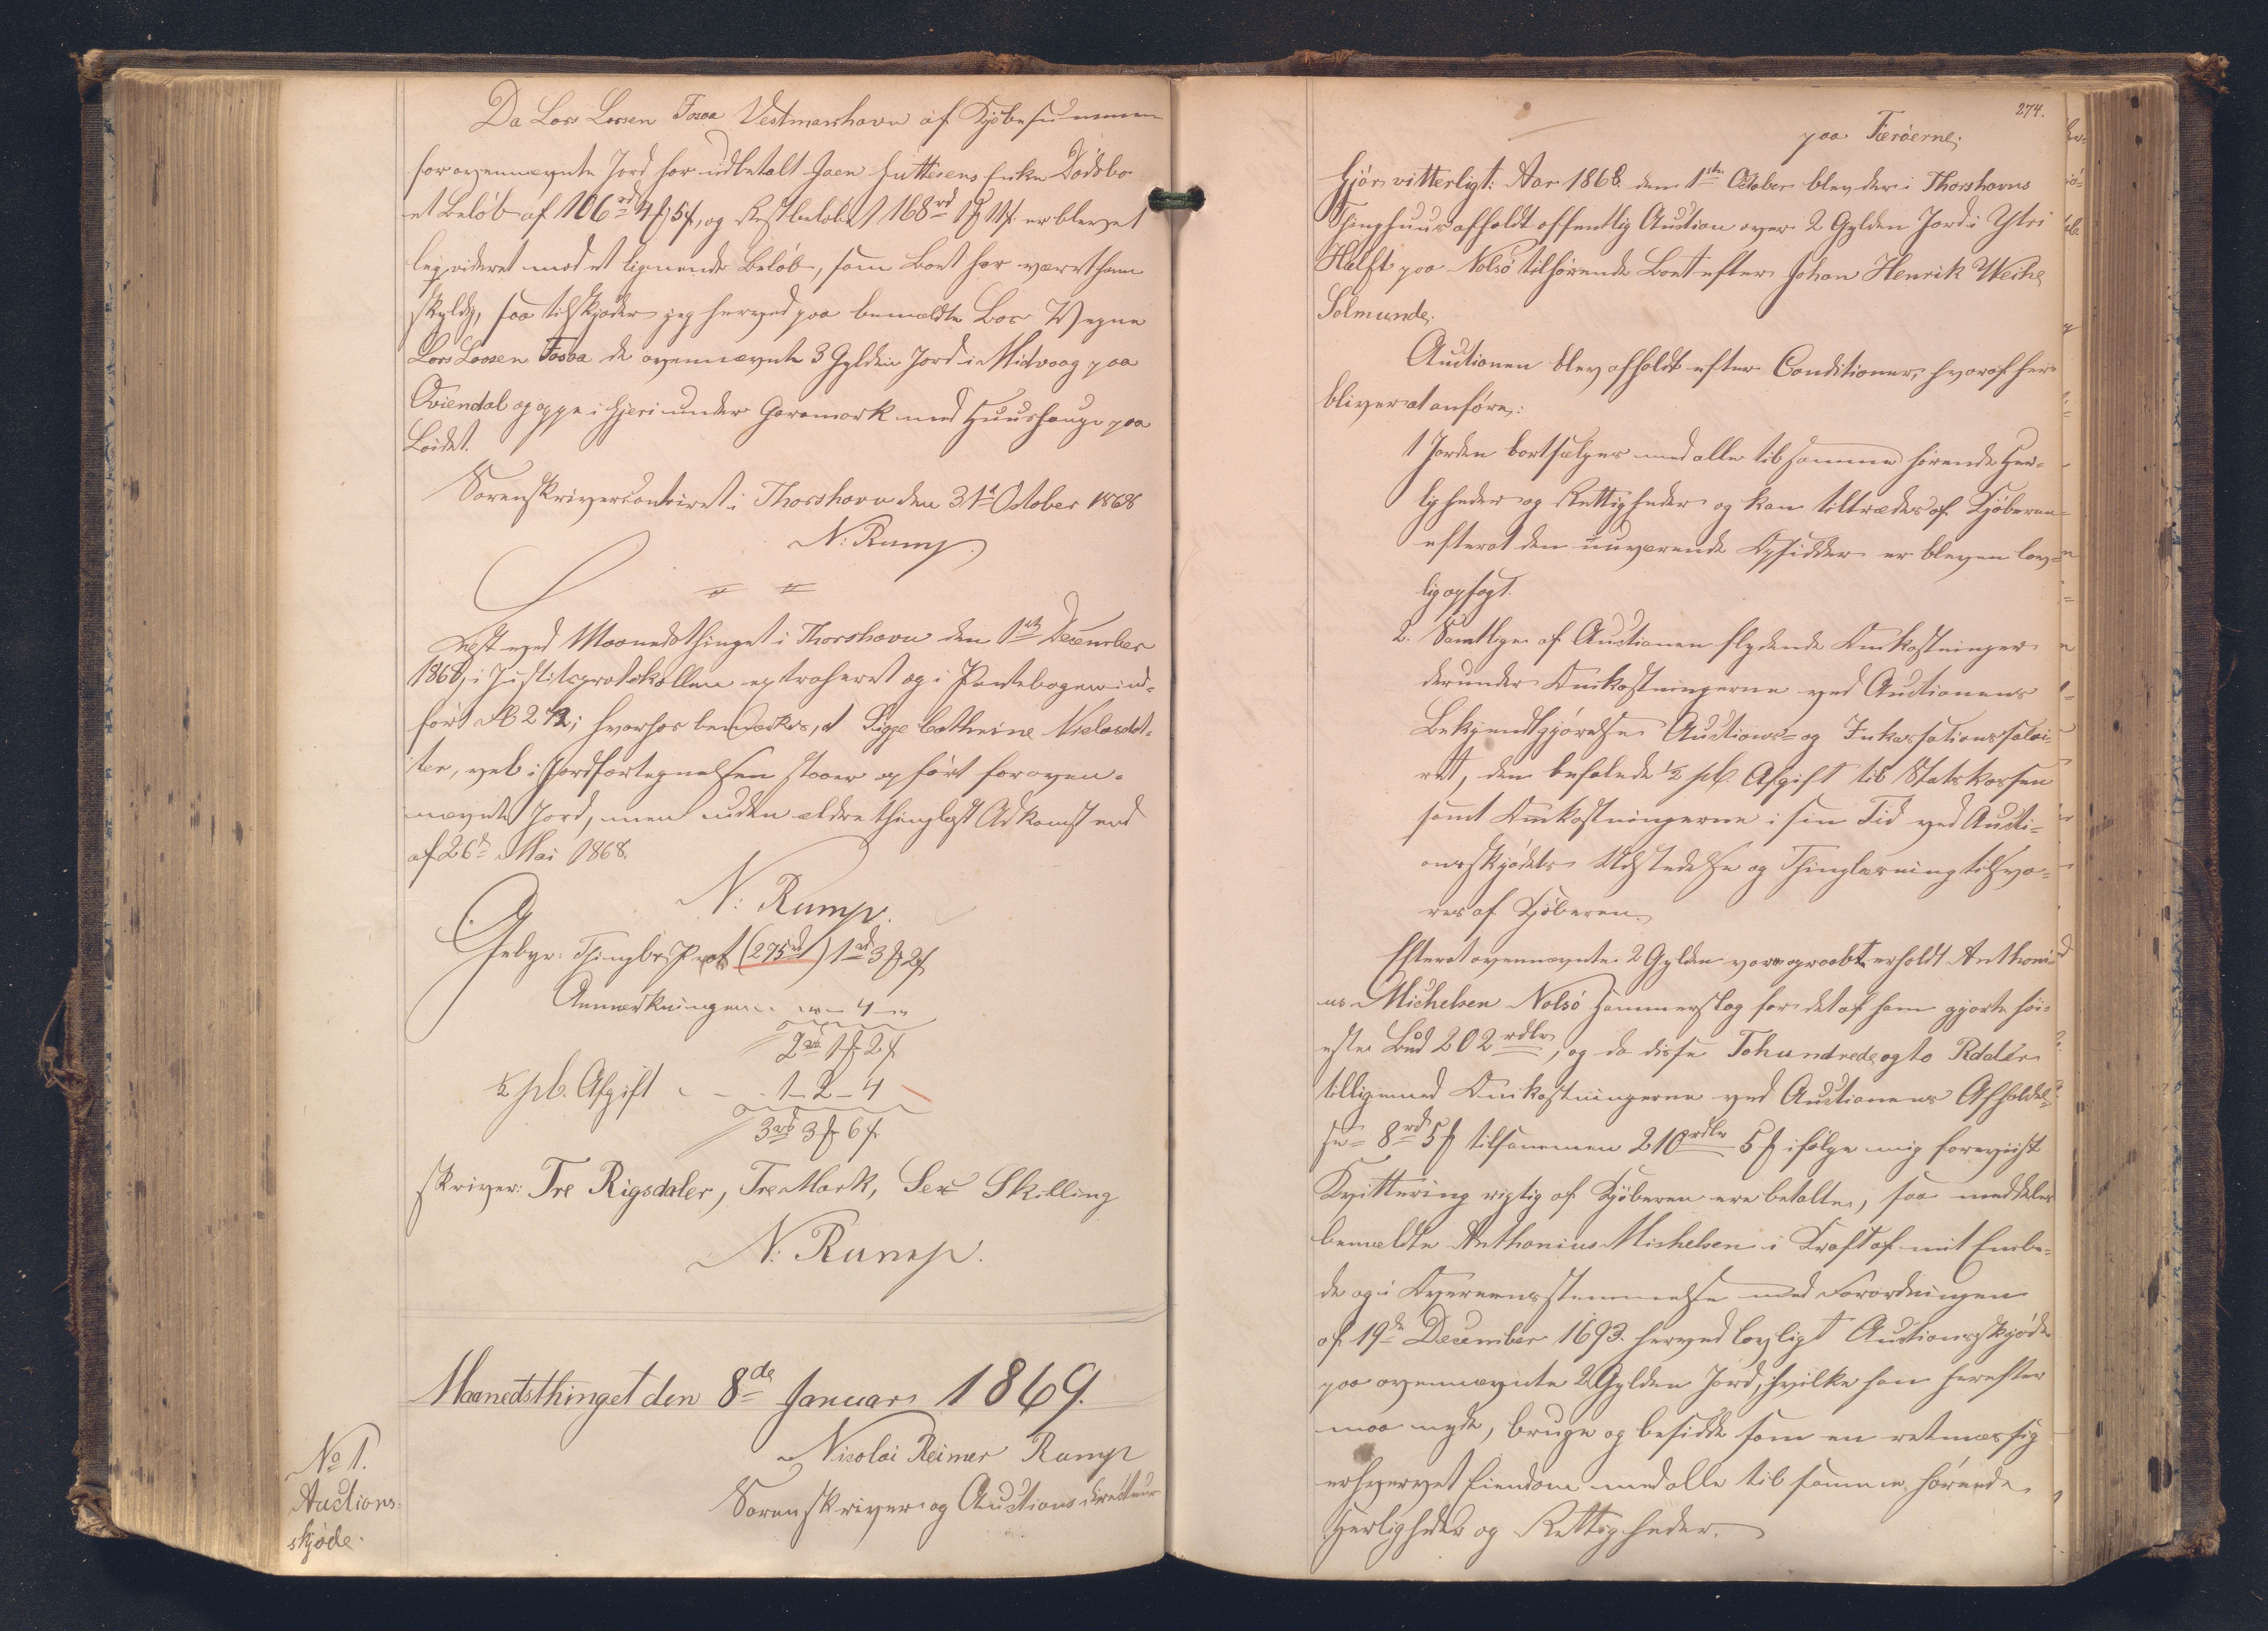 Da Lars Larsen Fosaa Vestmanhavn af Kjöbesummen
for ovennævnte Jord har udbetalt Joen Juttesens Enkes Dödsbo
et Beløb af 106 rd 4 ℳ 5 ß, og Restbeløbet 168 rd 1 ℳ 11 ß er blevet
liqvideret mod et lignende Beløb, som Boet har været ham
skyldig, saa tilskjøder jeg herved paa bemeldte Boes Vegne
Lars Larsen Fosaa de ovennævnte 3 Gylden Jord i Midvaag paa
Qviendal og oppe i Gjeri under Garamark med Huushauge paa
Leidet.
Sorenskrivercontoiret i Thorshavn den 31te October 1868
N: Rump.
Læst ved Maanedsthinget i Thorshavn den 1ste December
1868, i Justitsprotokollen extraheret og i Pantebogen ind-
ført Fol 272; hvorhos bemærkes, at Sigge Cathrine Nielsdat-
ter, vel i Jordfortegnelsen staaer opført for oven-
nævnte Jord, men uden ældre thinglæst Adkomst end
af 26de Mai 1868.
N: Rump.
Gebyr: Thingl. Prot (275 rd) 1 rd 3 ℳ 2 ß
Anmærkningen " - 4 - "
2 rd 1 ℳ 2 ß
½ pCt. Afgift - - 1 - 2 - 4
3 rd 3 ℳ 6 ß
skriver: Tre Rigsdaler, Tre Mark, Sex Skilling
N: Rump.
Maanedsthinget den 8de Januar 1869.
No 1.
Auctions-
skjøde.
Nicolai Reimer Rump
Sorenskriver og Auctionsdirecteur
274.
paa Færøerne;
Gjør vitterligt: Aar 1868 den 1ste October blev der i Thorshavns
Thinghuus afholdt offentlig Auction over 2 Gylden Jord i Ytri
Halft paa Nolsø tilhørende Boet efter Johan Henrik Weihe
Solmunde.
Auctionen blev afholdt efter Conditioner, hvoraf her
bliver at anføre:
1 Jorden bortsælges med alle til samme hørende Her-
ligheder og Rettigheder og kan tiltrædes af Kjøberen
efterat den nuværende Opsidder er bleven lov-
lig opsagt.
2. Samtlige af Auctionen flydende Omkostninger
derunder Omkostningerne ved Auctionens
Bekjendtgjørelse Auctions- og Inkassationssalai-
ret, den befalede ½ pCt. Afgift til Statskassen
samt Omkostningerne i sin Tid ved Aucti-
onsskjødets Udstedelse og Thinglæsning tilsva-
res af Kjøberen.
Efterat ovennævnte 2 Gylden vare opraabt erholdt Anthoni-
us Michelsen Nolsø Hammerslag for det af ham gjorte høi-
este Bud 202 rdlr, og da disse Tohundrede og to Rdaler
tilligemed Omkostningerne ved Auctionens Afholdel-
se - 8 rd 5 ß tilsammen 210 rdlr 5 ß ifølge mig foreviist
Kvittering rigtig af Kjøberen ere betalte, saa meddeles
bemeldte Anthonius Michelsen i Kraft af mit Embe-
de og i Overeensstemmelse med Forordningen
af 19de December 1693 herved lovligt Auctionsskjøde
paa ovennævnte 2 Gylden Jord, hvilke han herefter
maa nyde, bruge og besidde som en retmæssig
erhvervet Eiendom med alle til samme hørende
Herligheder og Rettigheder.